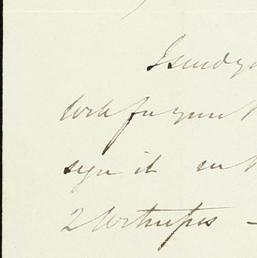 I send yo
for your
sign it
2 Witnesses -